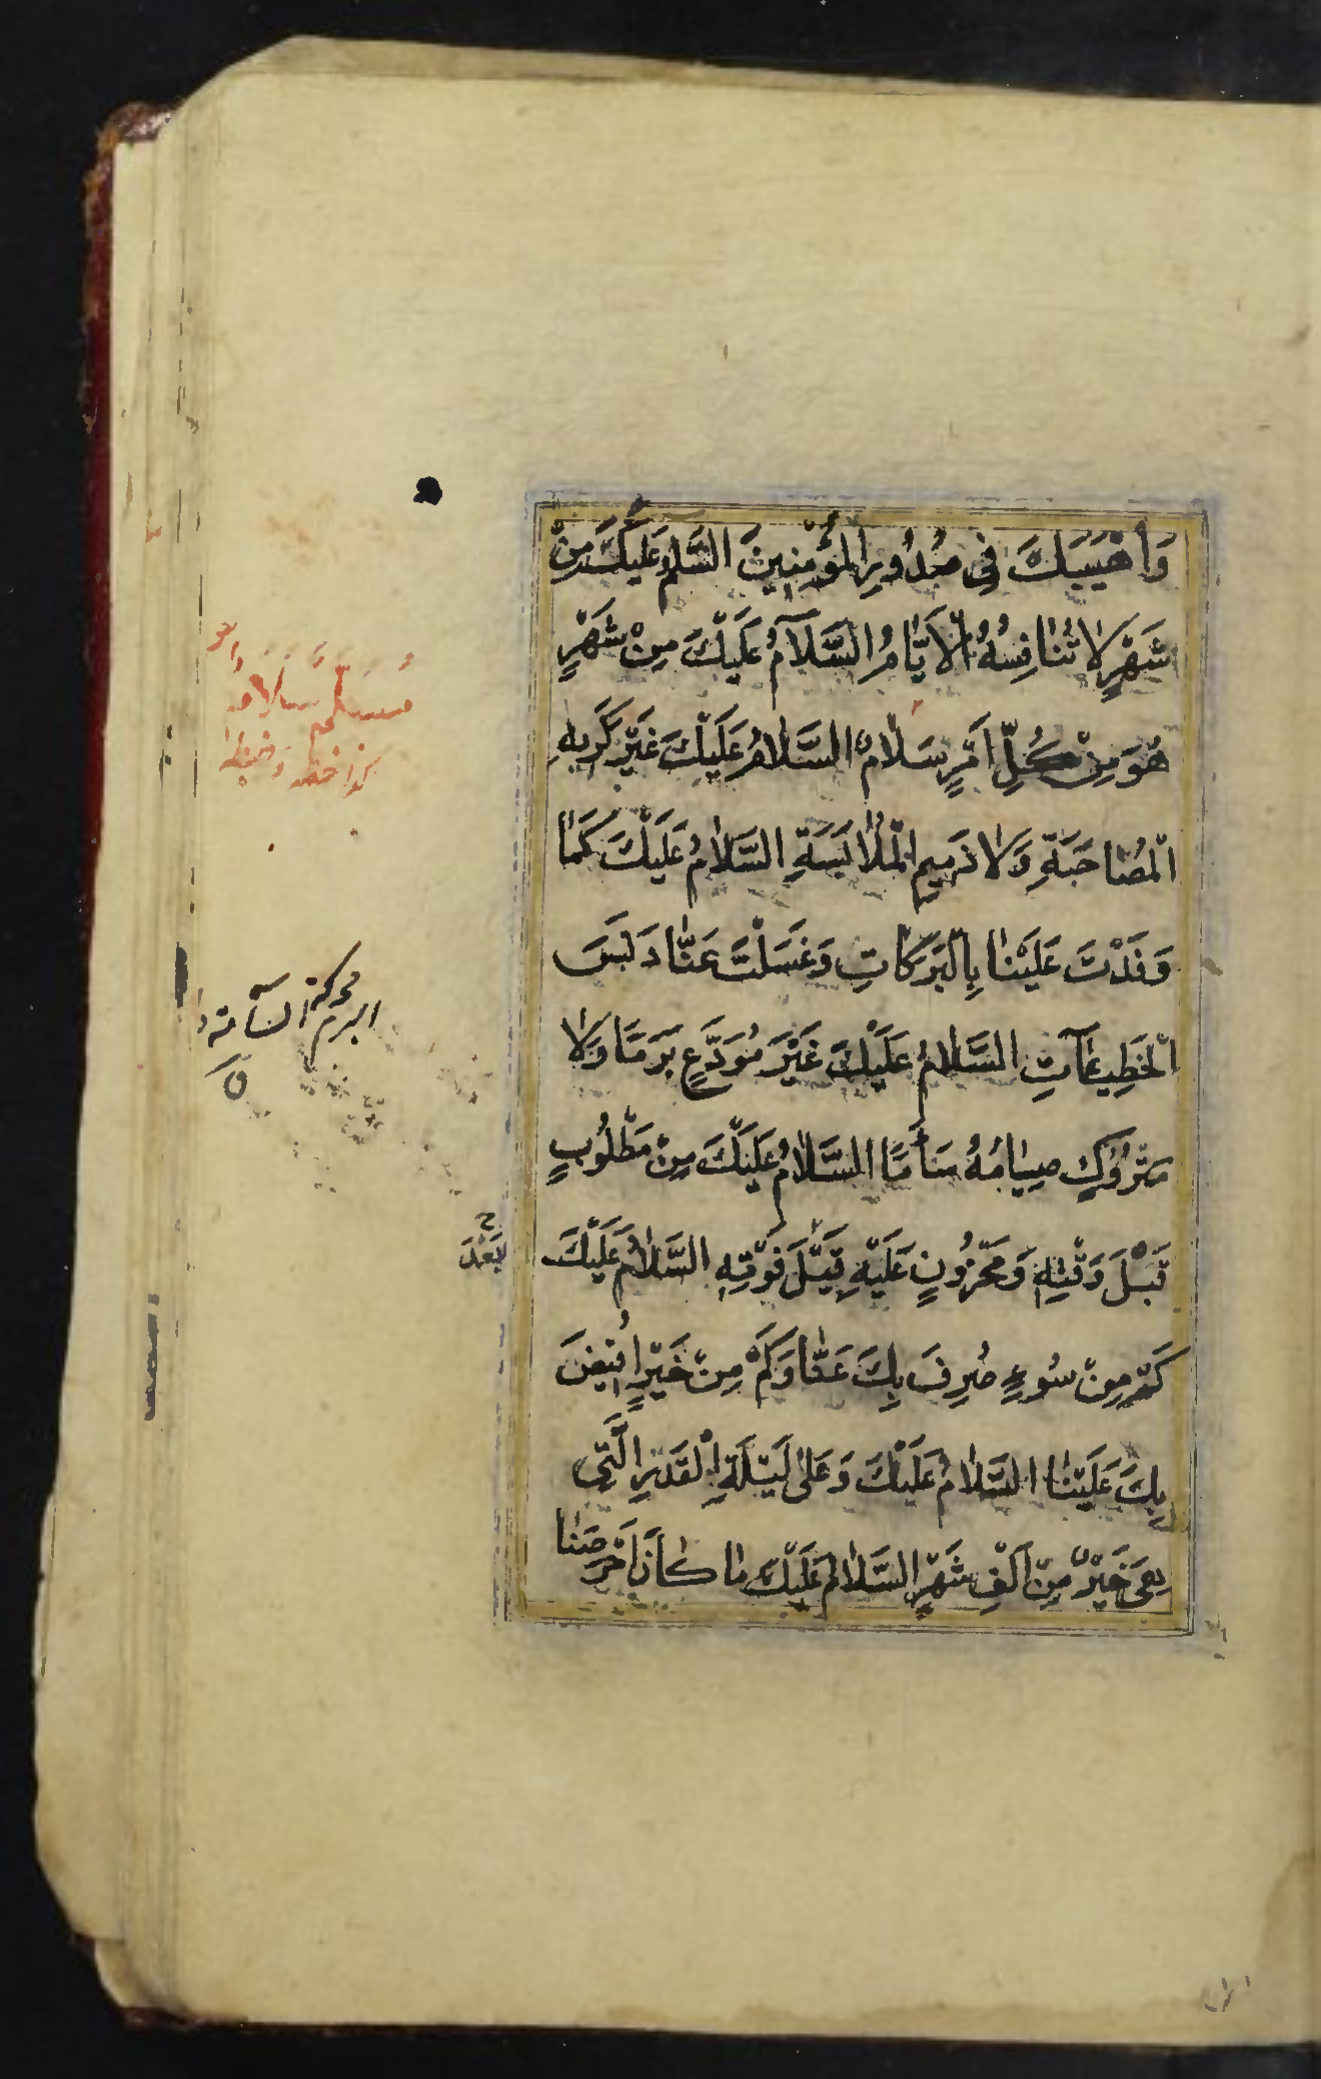 وَأَهْيَبَكَ فِي صُدُورِ الْمُؤْمِنِينَ السَّلَامُ عَلَيْكَ مِنْ
شَهْرٍ لَا تُنَافِسُهُ الْأَيَّامُ السَّلَامُ عَلَيْكَ مِنْ شَهْرٍ
هُوَ مِنْ كُلِّ أَمْرٍ سَلَامٌ السَّلَامُ عَلَيْكَ غَيْرَ كَرِيهِ
الْمُصَاحَبَةِ وَلَا ذَمِيمِ الْمُلَابَسَةِ السَّلَامُ عَلَيْكَ كَمَا
وَفَدْتَ عَلَيْنَا بِالْبَرَكَاتِ وَغَسَلْتَ عَنَّا دَنَسَ
الْخَطِيئَاتِ السَّلَامُ عَلَيْكَ غَيْرَ مُوَدَّعٍ بَرَمًا وَلَا
مَتْرُوكٍ صِيَامُهُ سَأَمًا السَّلَامُ عَلَيْكَ مِنْ مَطْلُوبٍ
قَبْلَ وَقْتِهِ وَمَحْزُونٍ عَلَيْهِ قَبْلَ فَوْتِهِ السَّلَامُ عَلَيْكَ
كَمْ مِنْ سُوءٍ صُرِفَ بِكَ عَنَّا وَكَمْ مِنْ خَيْرٍ أُفِيضَ
بِكَ عَلَيْنَا السَّلَامُ عَلَيْكَ وَعَلَى لَيْلَةِ الْقَدْرِ الَّتِي
هِيَ خَيْرٌ مِنْ أَلْفِ شَهْرٍ السَّلَامُ عَلَيْكَ مَا كَانَ أَحْرَصَنَا
البرم محركة السآمة
ق
بَعْدَ